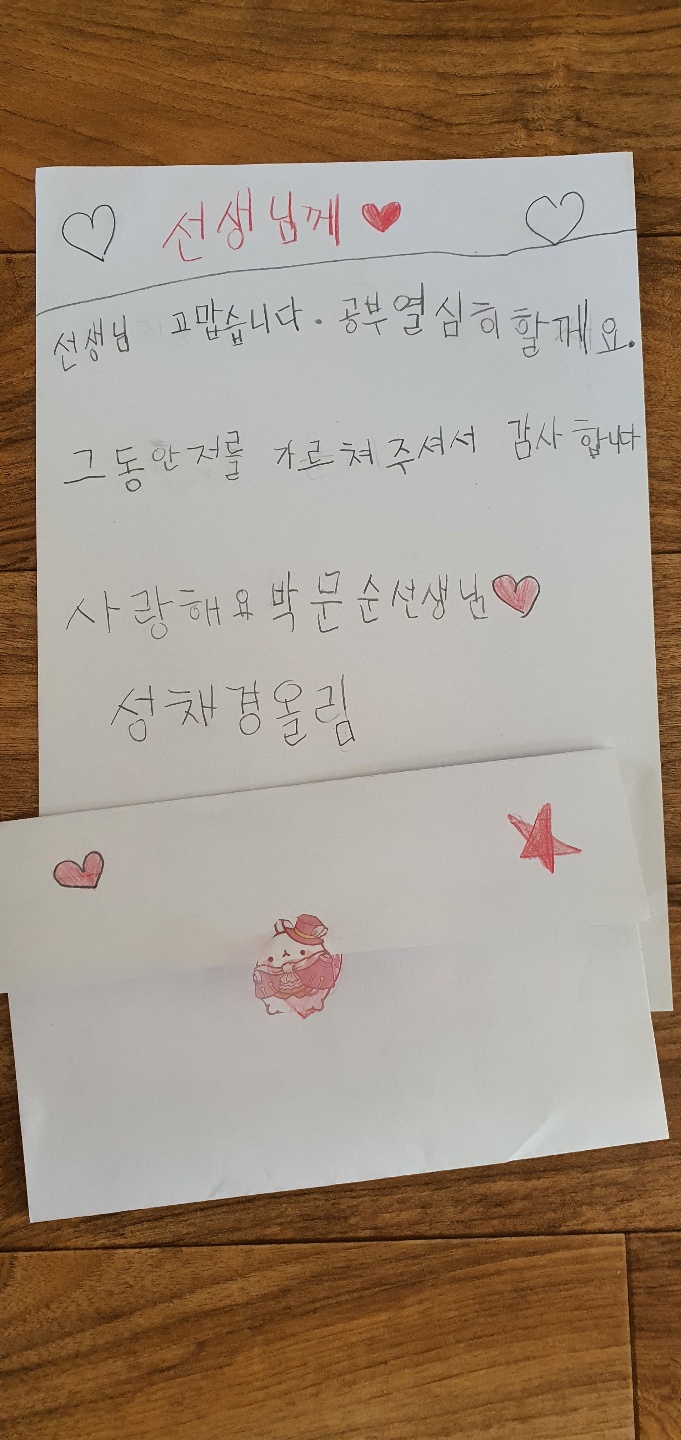 선생님께
선생님 고맙습니다. 공부열심히할께요.
그동안저를 가르쳐주셔서 감사합니다
사랑해요박문순선생님
성채경올림